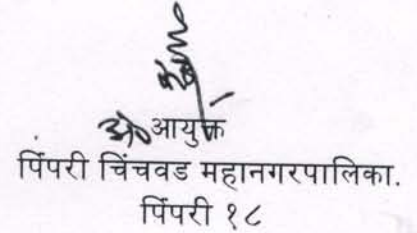 आयुक्त
पिंपरी चिंचवड महानगरपालिका.
पिंपरी १८